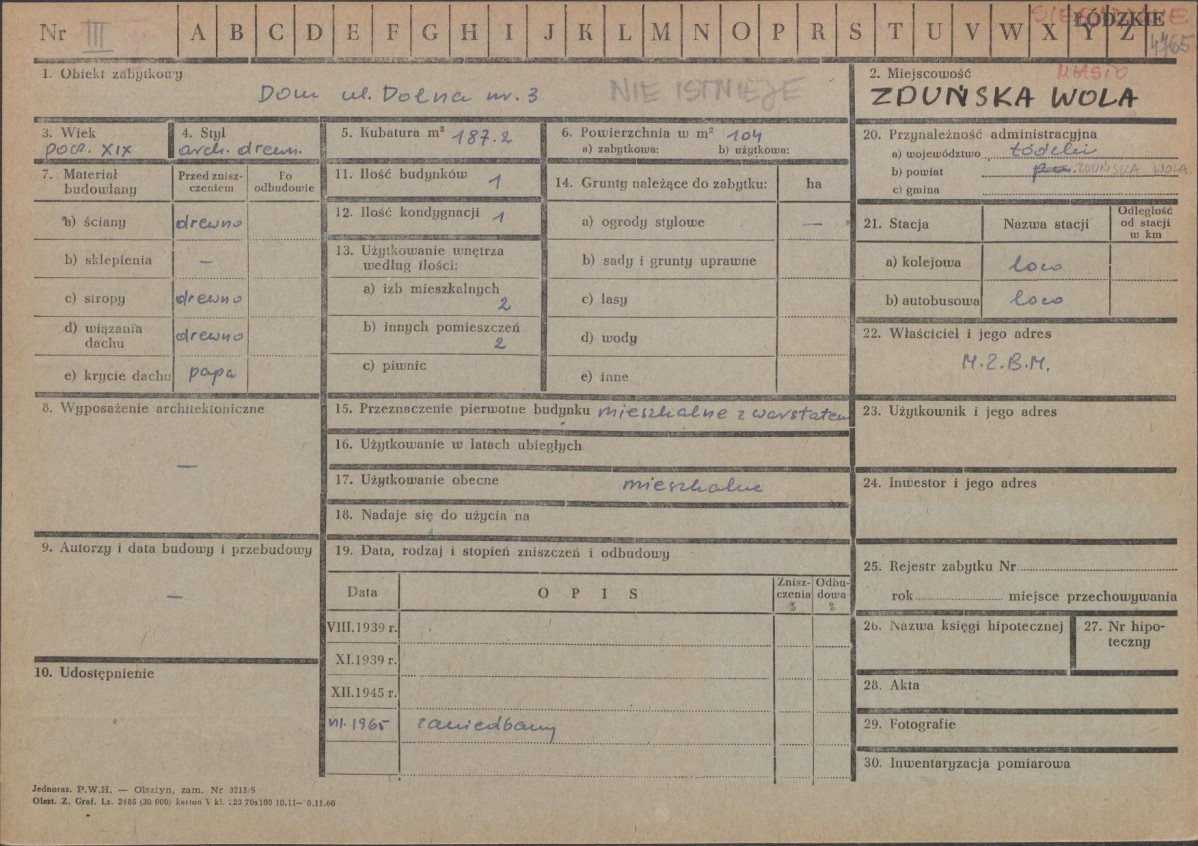 Nr III A B C D E F G H I J K L M N O P R S T U V W X Y Z
SIERADZKIE
ŁÓDZKIE
4765
1. Obiekt zabytkowy
Dom ul. Dolna nr. 3
NIE ISTNIEJE
2. Miejscowość
MIASTO
ZDUŃSKA WOLA
3. Wiek
pocz. XIX
4. Styl
arch. drewn.
5. Kubatura m³ 187.2
6. Powierzchnia w m² 104
a) zabytkowa: b) użytkowa:
20. Przynależność administracyjna
a) województwo
b) powiat ZDUŃSKA WOLA
c) gmina
7. Materiał budowlany
Przed zniszczeniem
Po odbudowie
a) ściany drewno
b) sklepienia —
c) stropy drewno
d) wiązania dachu drewno
e) krycie dachu papa
11. Ilość budynków 1
12. Ilość kondygnacji 1
13. Użytkowanie wnętrza
według ilości:
a) izb mieszkalnych
2
b) innych pomieszczeń
2
c) piwnic
14. Grunty należące do zabytku: ha
a) ogrody stylowe —
b) sady i grunty uprawne
c) lasy
d) wody
e) inne
21. Stacja Nazwa stacji
Odległość
od stacji
w km
a) kolejowa loco
b) autobusowa loco
22. Właściciel i jego adres
M.Z.B.M.
8. Wyposażenie architektoniczne
—
15. Przeznaczenie pierwotne budynku mieszkalne z warstatem
16. Użytkowanie w latach ubiegłych
17. Użytkowanie obecne mieszkalne
18. Nadaje się do użycia na
23. Użytkownik i jego adres
24. Inwestor i jego adres
9. Autorzy i data budowy i przebudowy
—
19. Data, rodzaj i stopień zniszczeń i odbudowy
Data O P I S
Zniszczenia %
Odbudowa %
VIII.1939 r.
XI.1939 r.
XII.1945 r.
VII. 1965 zaniedbany
25. Rejestr zabytku Nr
rok miejsce przechowywania
26. Nazwa księgi hipotecznej
27. Nr hipoteczny
10. Udostępnienie
28. Akta
29. Fotografie
30. Inwentaryzacja pomiarowa
Jednoraz. P.W.H. — Olsztyn, zam. Nr 3215/S
Olszt. Z. Graf. Lz. 2485 (30 000) karton V kl. 70x100